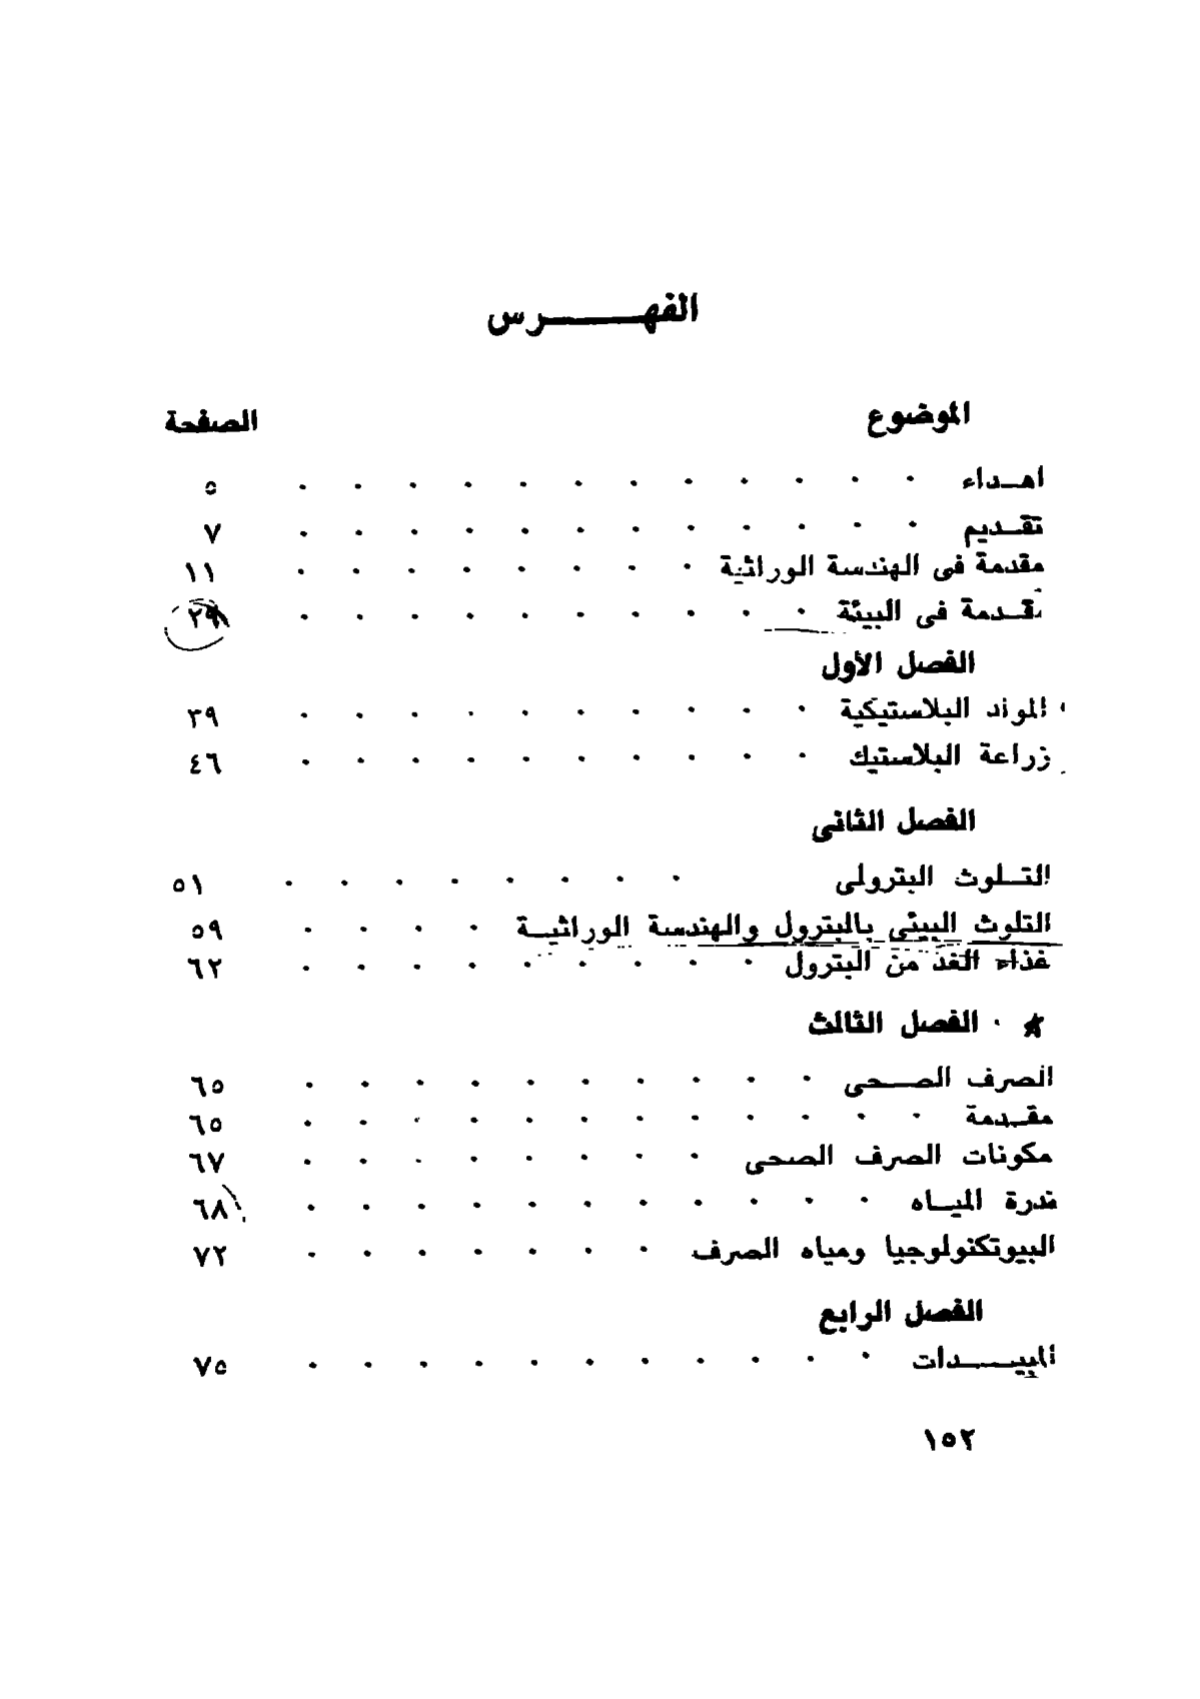 الفهـــرس
الموضوع الصفحة
اهـداء . . . . . . . . . . . . ٥
تقـديم . . . . . . . . . . . . ٧
مقدمة فى الهندسة الوراثية . . . . . . . . ١١
مقـدمة فى البيئة . . . . . . . . . .
الفصل الأول
المواد البلاستيكية . . . . . . . . . . ٣٩
زراعة البلاستيك . . . . . . . . . . ٤٦
الفصل الثانى
التـلوث البترولى . . . . . . . . ٥١
التلوث البيئى بالبترول والهندسة الوراثيـة . . . . ٥٩
غذاء الغد من البترول . . . . . . . . . ٦٢
★ . الفصل الثالث
الصرف الصـحى . . . . . . . . . . ٦٥
مقـدمة . . . . . . . . . . . . ٦٥
مكونات الصرف الصحى . . . . . . . . ٦٧
ندرة الميـاه . . . . . . . . . . . ٦٨
البيوتكنولوجيا ومياه الصرف . . . . . . . ٧٢
الفصل الرابع
المبيـــدات . . . . . . . . . . . ٧٥
١٥٢